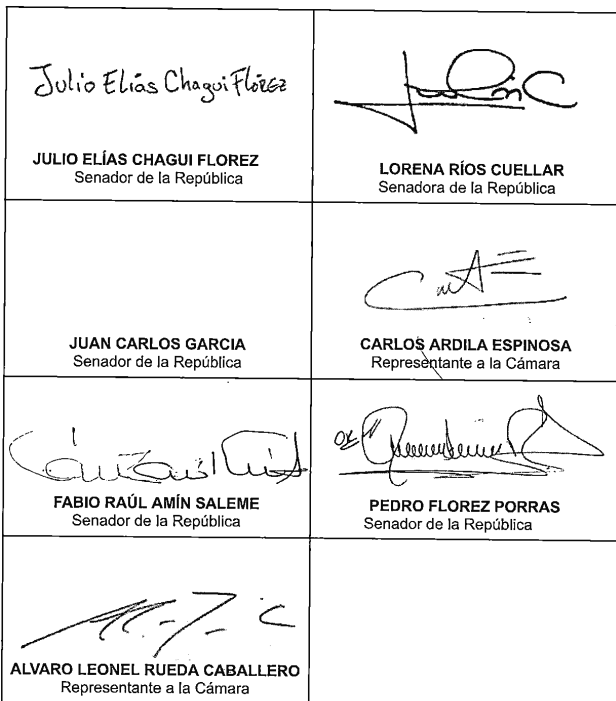 Julio Elías Chagui Flórez
JULIO ELÍAS CHAGUI FLOREZ
Senador de la República
LORENA RÍOS CUELLAR
Senadora de la República
JUAN CARLOS GARCIA
Senador de la República
CARLOS ARDILA ESPINOSA
Representante a la Cámara
FABIO RAÚL AMÍN SALEME
Senador de la República
PEDRO FLOREZ PORRAS
Senador de la República
ALVARO LEONEL RUEDA CABALLERO
Representante a la Cámara